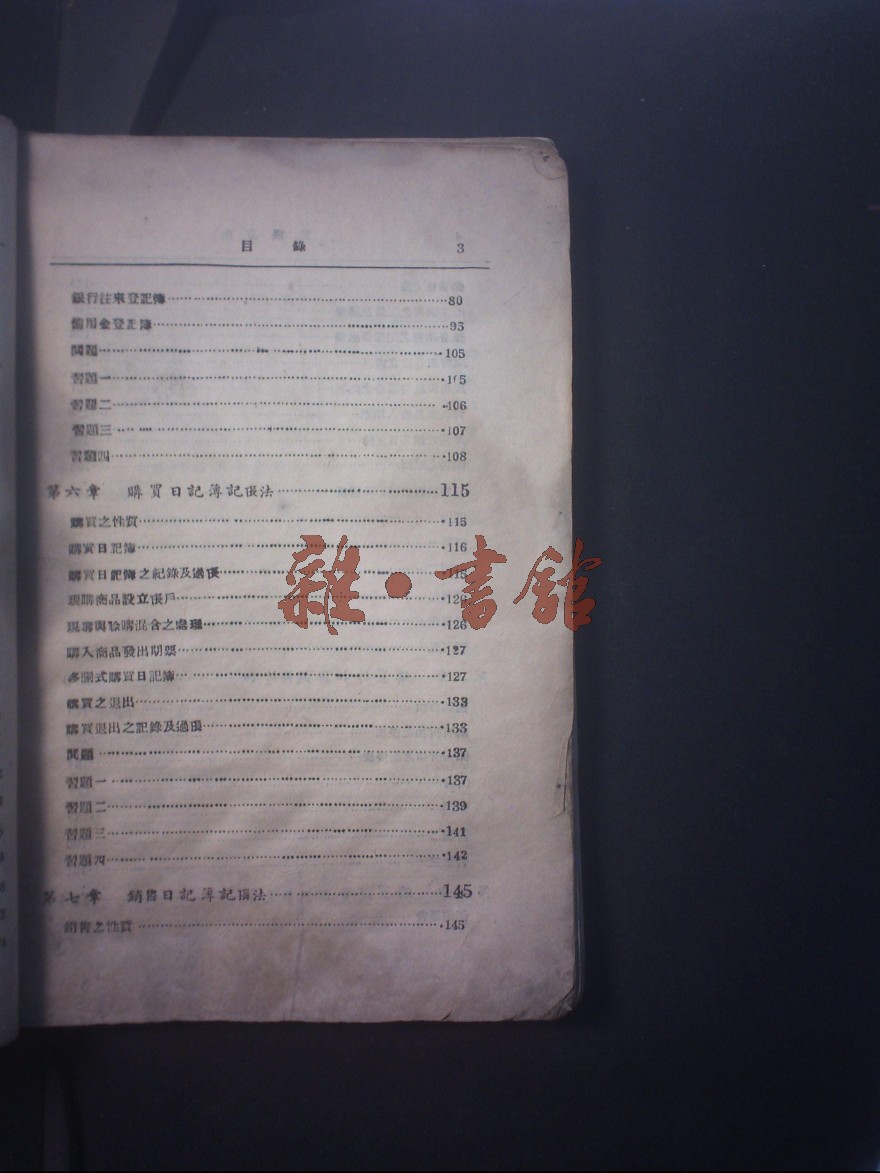 目 錄 3
銀行往來登記簿 80
備用金登記簿 95
問題 105
習題一 105
習題二 106
習題三 107
習題四 108
第六章 購買日記簿記賬法 115
購買之性質 115
購買日記簿 116
購買日記簿之紀錄及過賬
現購商品設立賬戶
現購與賒購混合之處理 126
購入商品發出期票 127
多欄式購買日記簿 127
購買之退出 133
購買退出之記錄及過賬 133
問題 137
習題一 137
習題二 139
習題三 141
習題四 142
第七章 銷售日記簿記賬法 145
銷售之性質 145
雜·書舘